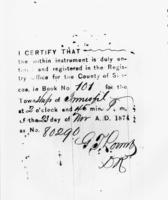 I CERTIFY THAT
the within instrument is duly en-
tered and registered in the Regis-
try Office for the County of Sim-
coe, in Book No 101 for the
Township of Innisfil
at 2 o'clock and 45 min. P. M.
of the 23 day of Nov A. D. 1874
as No. 80290